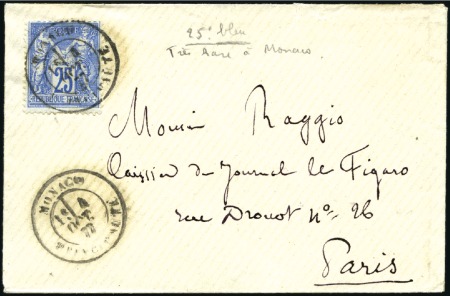 25c bleu
Très Rare à Monaco.
25
REPUBLIQUE FRANÇAISE
Monsieur Raggio
Caissier du Journal le Figaro
rue Drouot No 26
Paris
MONACO
4
OCT
77